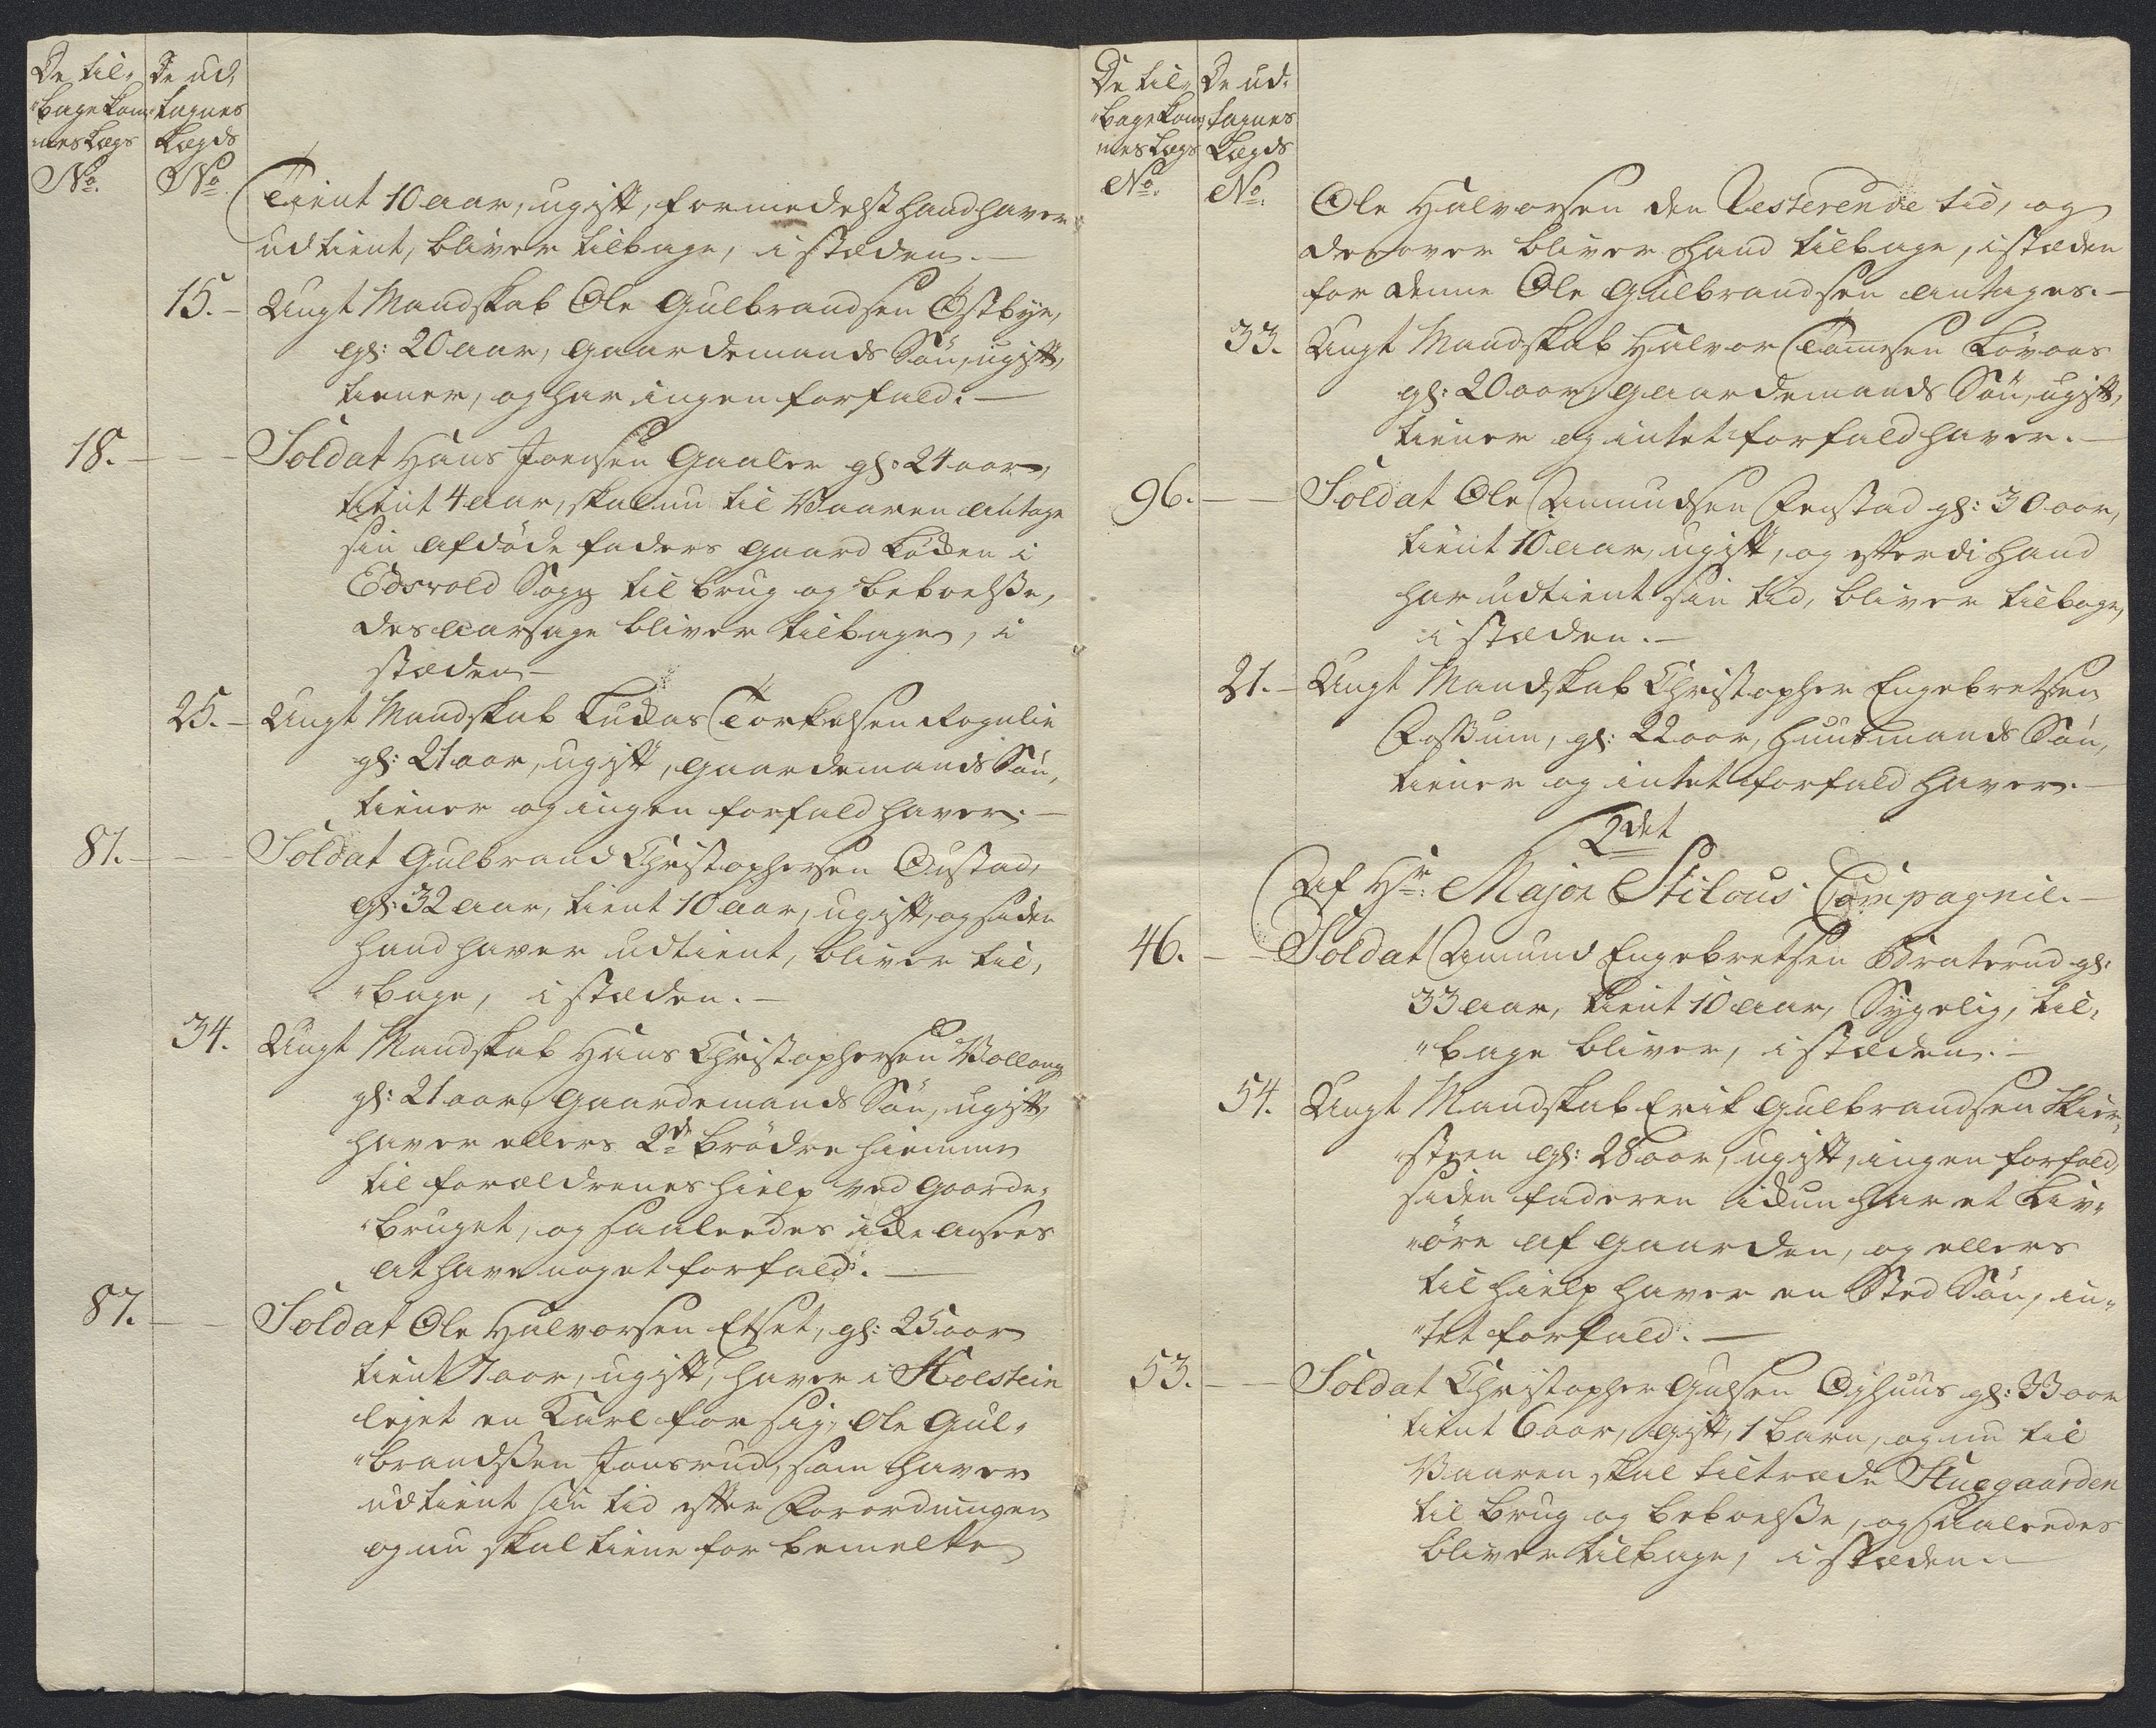 De til„
„bagekom„
mes Lægs
No.
De ud„
tagnes
Lægds
No.
Tient 10 aar, ugift, formedelst hand haver
udtient, bliver tilbage, i stæden. —
15. — Ungt Mandskab Ole Gulbrandsen Östbye,
gl: 20 aar, gaardemands Sön, ugift,
tiener, og har ingen forfald. —
18. — — Soldat Hans Joensen Gaaler gl: 24 aar,
tient 4 aar, skal nu til Vaaren antage
sin afdöde faders gaard Lödden i
Edsvold Sogn til brug og beboelsse,
des aarsage bliver tilbage, i
stæden —
25. — Ungt Mandskab Luddas Torkelsen Rognlie
gl: 21 aar, ugift, gaardemands Sön,
tiener og ingen forfald haver. —
81. — — Soldat Gulbrand Christophersen Oustad,
gl: 32 aar, tient 10 aar, ugift, og siden
hand haver udtient, bliver til„
„bage, i stæden. —
34. Ungt Mandskab Hans Christophersen Vollaug
gl: 21 aar, Gaardemands Sön, ugift,
haver ellers 2de brödre hiemme
til forældrenes hielp ved Gaarde„
„bruget, og saaleedes icke ansees
at have noget forfald. —
87. — — Soldat Ole Halvorsen Etset, gl: 25 aar
tient 7 aar, ugift, haver i Holstein
lejet en Karl for sig, Ole Gul„
„brandssen Jonsrud, som haver
udtient sin tid efter Forordningen
og nu skal tiene for bemelte
De til„
„bagekom„
mes Lægs
No.
De ud„
tagnes
Lægds
No.
Ole Halvorsen den Resterende tid, og
derover bliver hand tilbage, i stæden
for denne Ole Gulbrandsen antages. —
33. Ungt Mandskab Halvor Tomesen Lövaas
gl: 20 aar, gaardemands Sön, ugift,
tiener og intet forfald haver. —
96. — — Soldat Ole Amundsen Fenstad gl: 30 aar,
tient 10 aar, ugift, og efterdi hand
har udtient sin tid, bliver tilbage,
i stæden. —
21. — Ungt Mandskab Christopher Engebretsen
Fossum, gl: 22 aar, huusmands Sön,
tiener og intet forfald haver. —
2det
Af Hr: Major Stilous Compagnie. —
46. — — Soldat Amund Engebretsen Braterud gl:
33 aar, tient 10 aar, Sygelig, til„
„bage bliver, i stæden. —
54. Ungt Mandskab Erik Gulbrandsen Skier„
„steen gl: 28 aar, ugift, ingen forfald,
siden faderen ickun har et Liv„
„öre af gaarden, og ellers
til hielp haver en Sted Sön, in„
„tet forfald. —
53. — — Soldat Christopher Gulsen Ophuus gl: 33 aar
tient 6 aar, gift, 1 barn, og nu til
Vaaren skal tiltræde Stuegaarden
til brug og beboelsse, og saaleedes
bliver tilbage, i stæden —